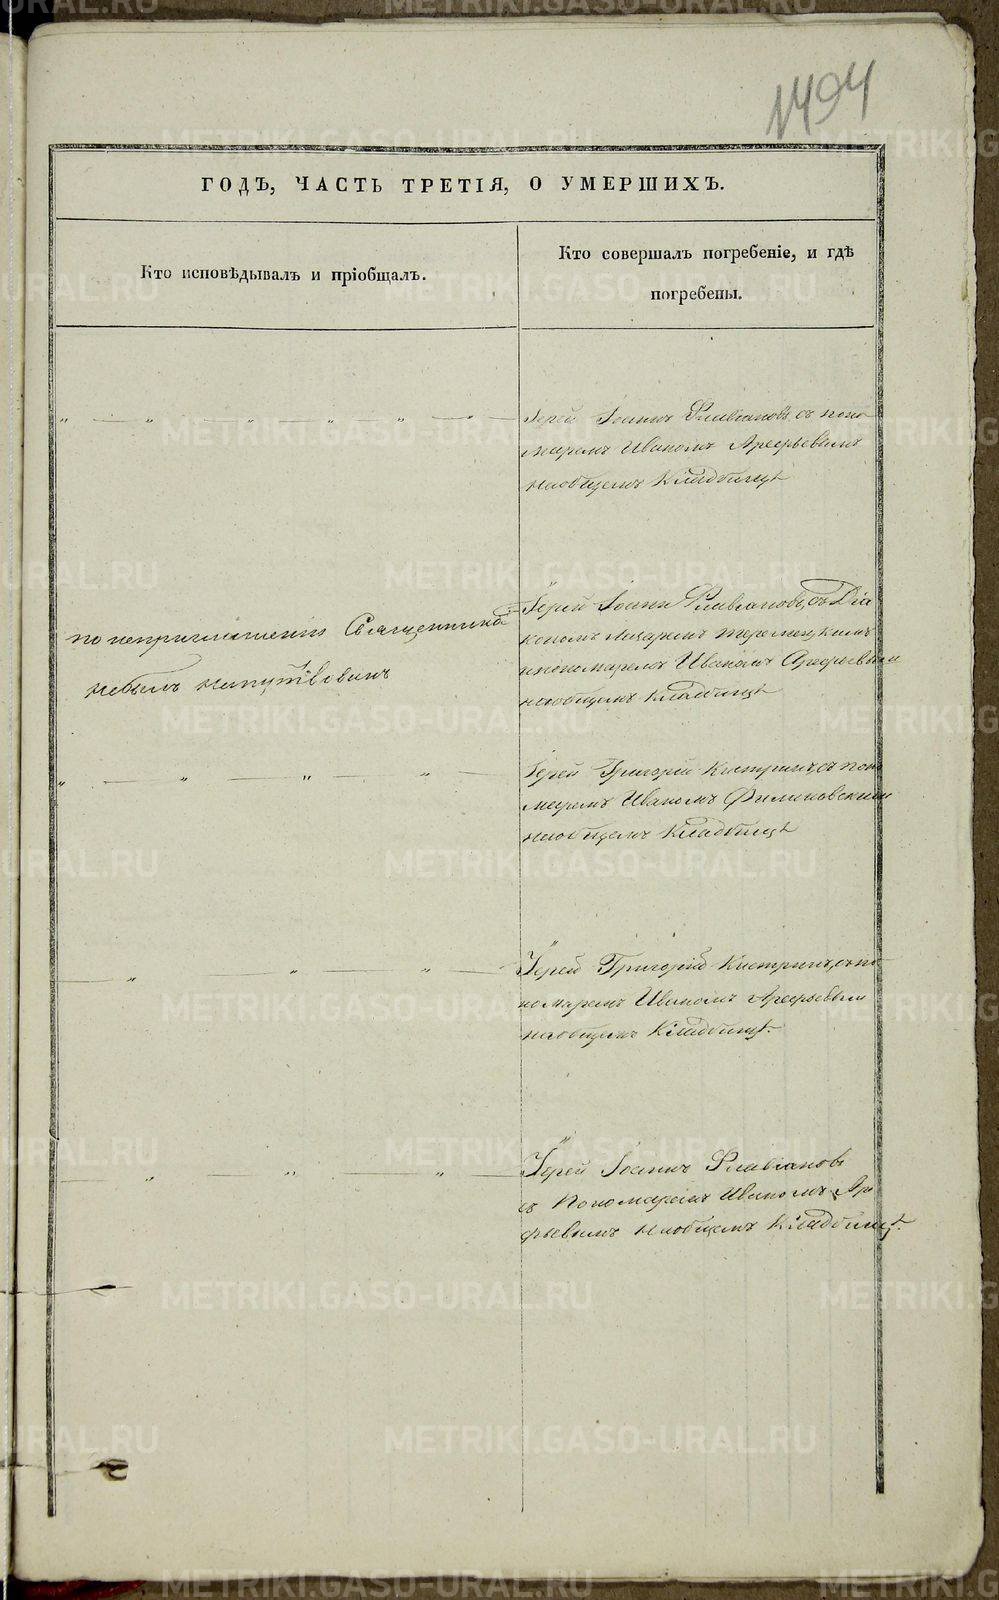 1494
ГОДЪ, ЧАСТЬ ТРЕТІЯ, О УМЕРШИХЪ.
Кто исповѣдывалъ и пріобщалъ.
Кто совершалъ погребеніе, и гдѣ
погребены.
„ — „ — „ — „ — „ — „ —
Іерей Іоаннъ Флавіановъ, съ поно
маремъ Иваномъ Арефьевымъ
наобщемъ Кладбищѣ
по неприглашенію Священника
небылъ напутствованъ
Іерей Іоаннъ Флавіановъ, съ Діа
кономъ Лазаремъ
ипономаремъ Иваномъ Арефьевымъ
наобщемъ кладбищѣ
„ — „ — „ — „ —
Іерей Григорій Кастринъ, съ поно
маремъ Иваномъ Филиновскимъ
наобщемъ Кладбищѣ
— „ — „ — „ —
Іерей Григорій Кастринъ, съ по
номаремъ Иваномъ Арефьевымъ
наобщемъ Кладбищѣ.
— „ — „ — „ —
Іерей Іоаннъ Флавіановъ
съ Пономаремъ Иваномъ Аре
фьевымъ наобщемъ Кладбищѣ.
METRIKI.GASO-URAL.RU